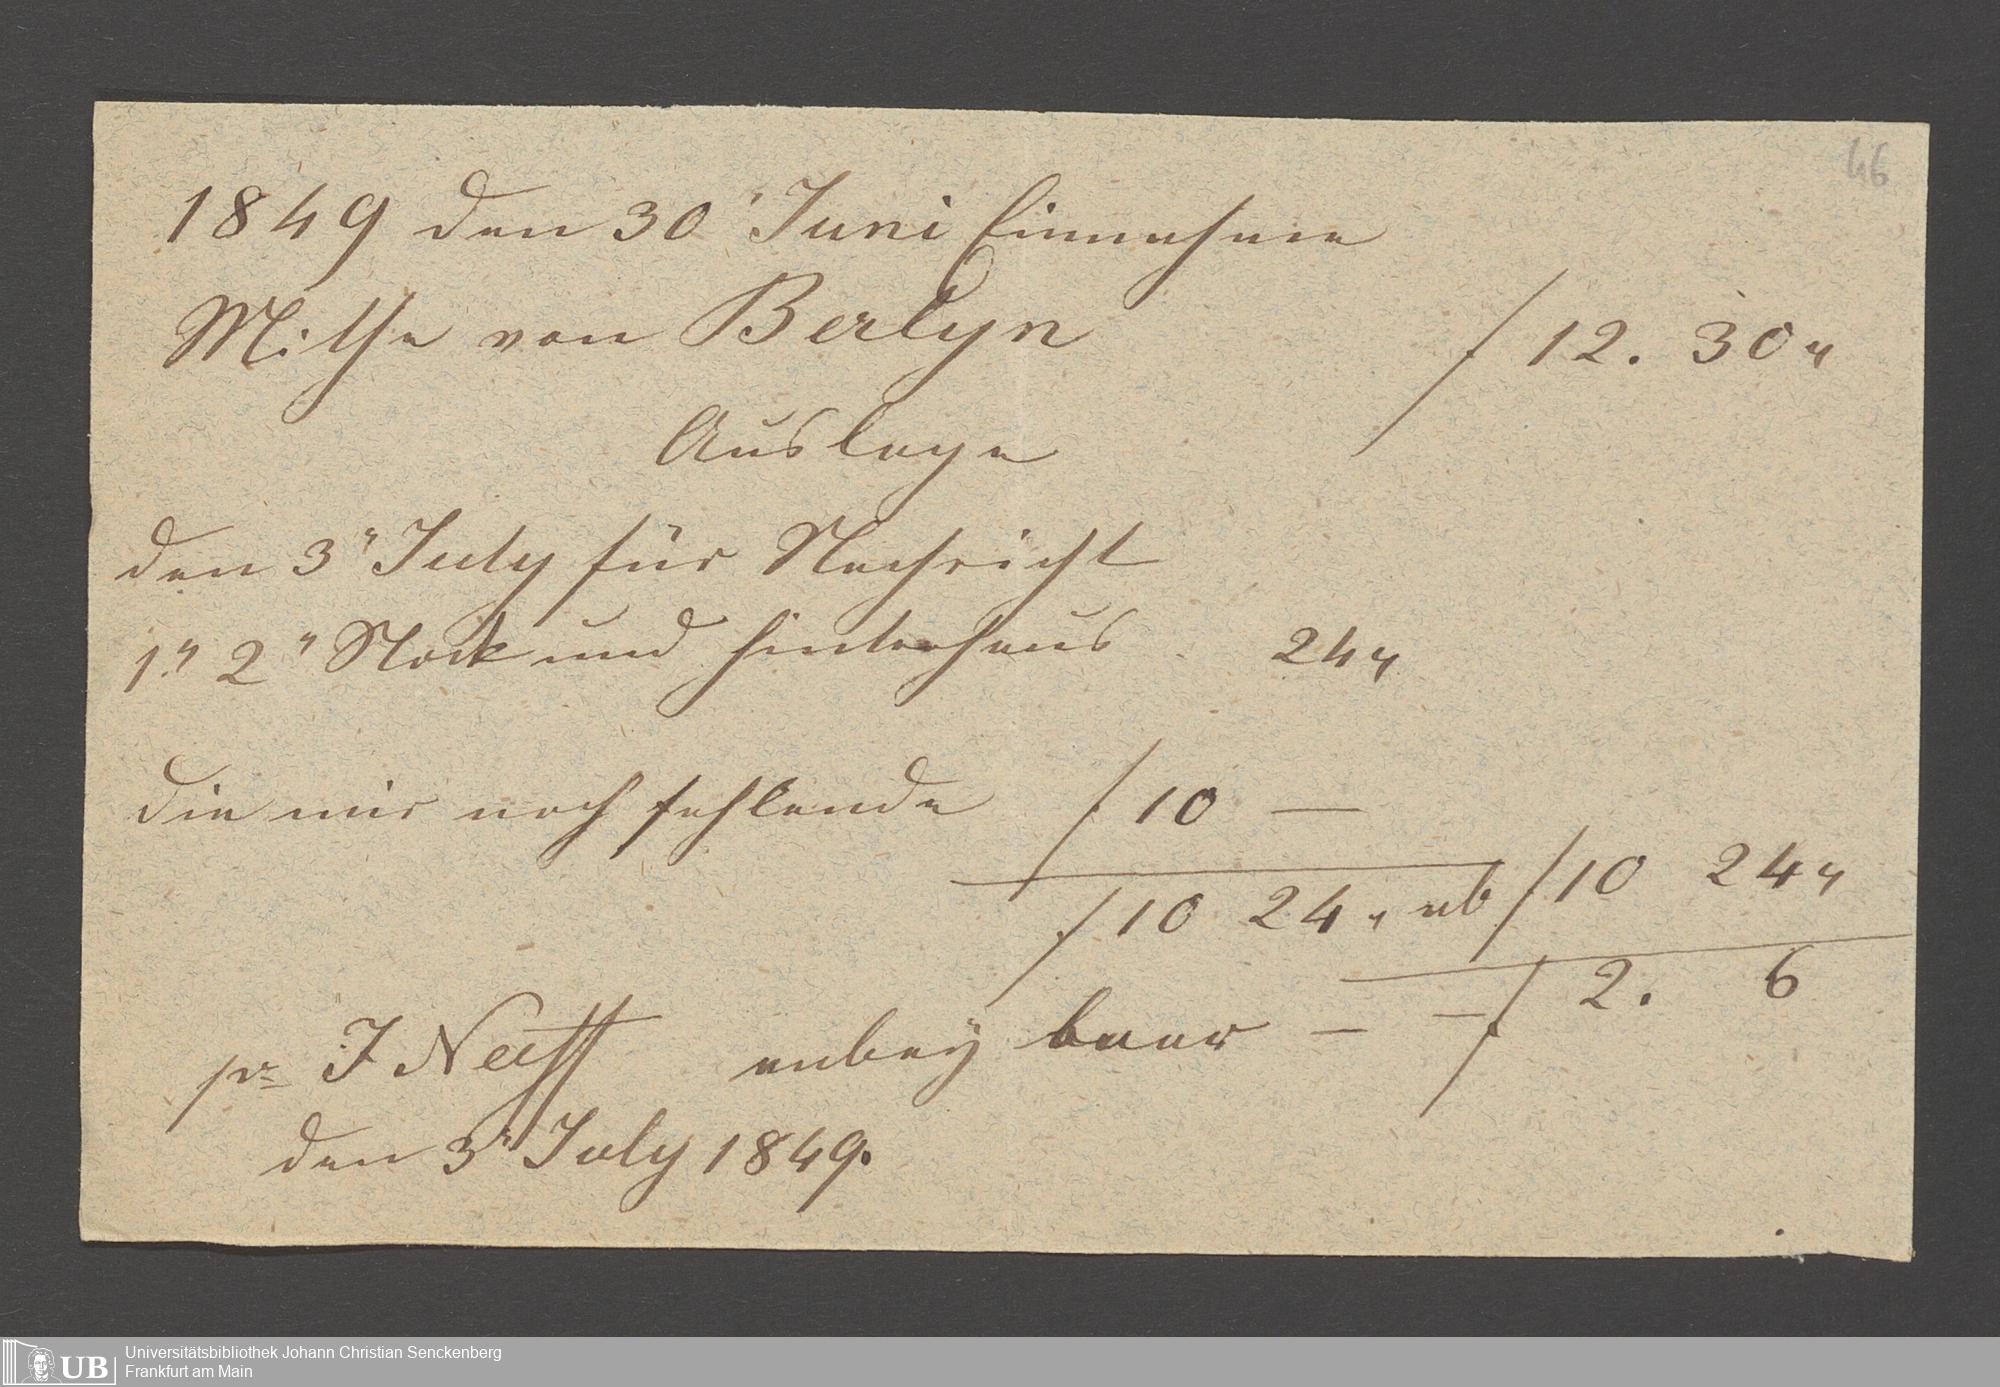 46
1849 den 30' Juni Einnahme
Mithe von Berlyn f 12. 30 "
Auslage
den 3" July für Nachricht
1." 2" Stock und Hinterhaus 24 "
die mir noch fehlende f 10 —
f 10 24 " ab f 10 24 "
f 2. 6
pr J Neff anbey baar — —
den 3" July 1849.
Universitätsbibliothek Johann Christian Senckenberg
Frankfurt am Main
UB